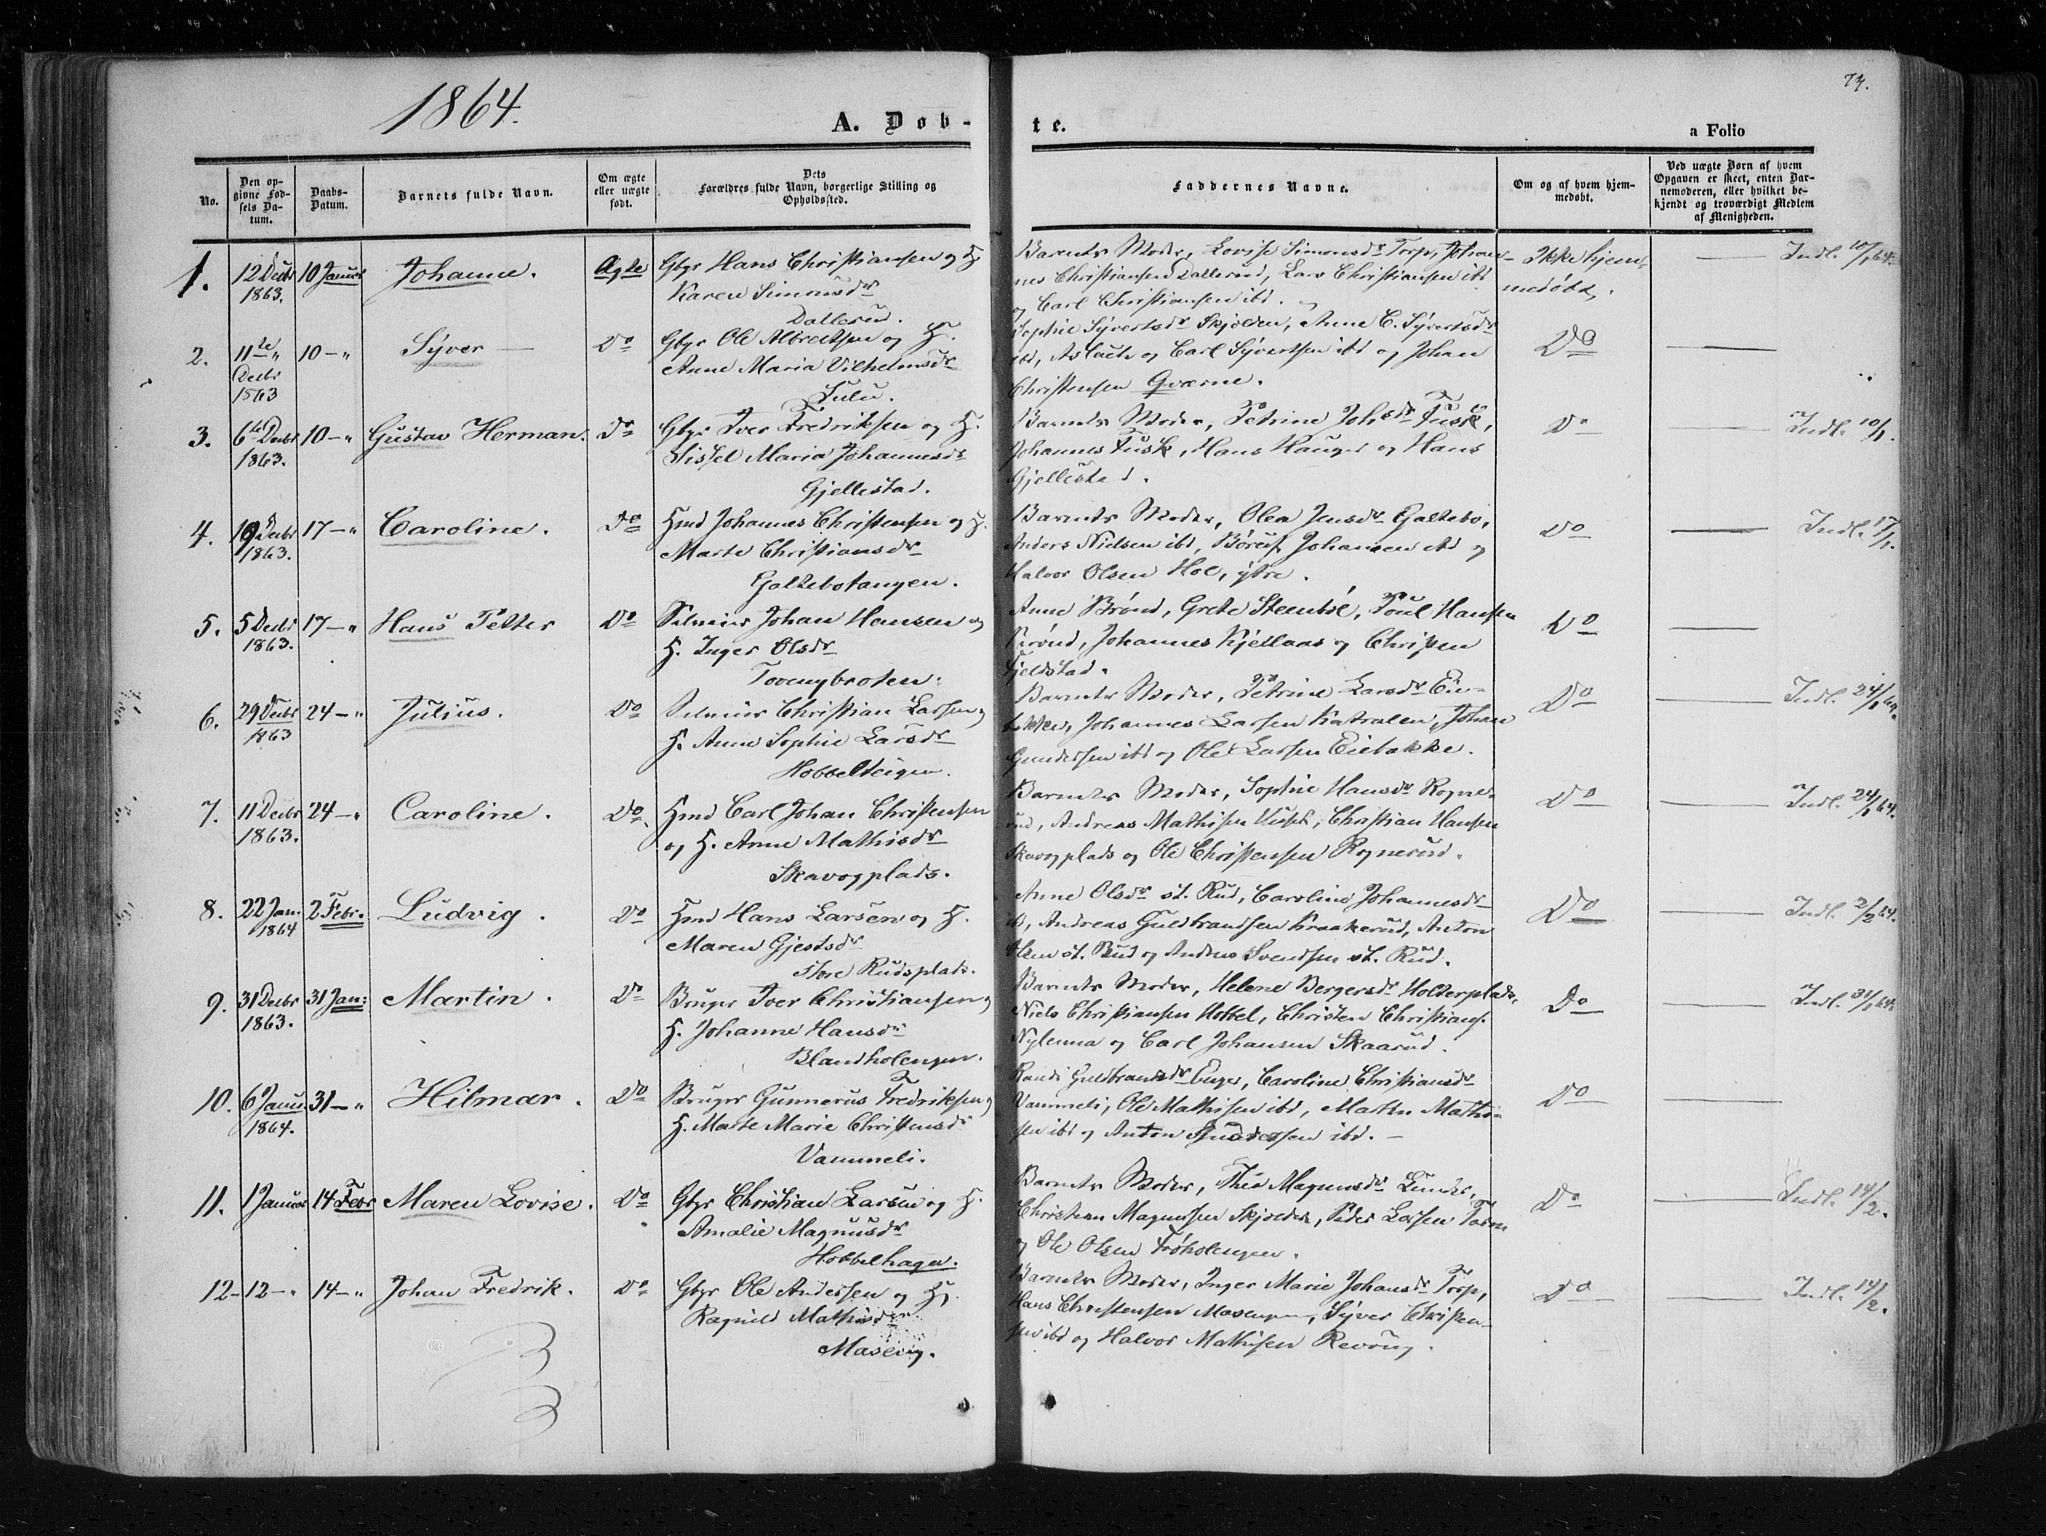 1864.
74.
A. Døb-
te.
a Folio
No.
Den op-
givne Fød-
sels Da-
tum.
Daabs-
Datum.
Barnets fulde Navn.
Om ægte
eller uægte
født.
Dets
Forældres fulde Navn, borgerlige Stilling og
Opholdssted.
Faddernes Navne.
Om og af hvem hjem-
medøbt.
Ved uægte Børn af hvem
Opgaven er skeet, enten Bar-
nemoderen, eller hvilket be-
kjendt og troværdigt Medlem
af Menigheden.
1. 12 Decbr 10 Januar Johanne. Ægte Gbgr Hans Christiansen og H.
1863.
Karen Simonsdr
Dallerud.
Barnets Moder, Lovise Simonsdr Torp, Johan-
nes Christiansen Dallerud, Lars Christiansen ibd
og Carl Christiansen ibd.
Ikke hjem-
medøbt.
Indl. 10/1 64.
2. 11te Decbr 1863 10 - " Syver Do Gbgr Ole Albretsen og H.
Anne Maria Vilhelmsdr
Lulu.
Sophie Syvertsdr Skjolden, Anne C. Syvertsdr
ibd, Aslach og Carl Syvertsen ibd og Johan
Christensen Qværne.
Do
3. 6te Decbr 10 - " Gustav Herman. Do Gbgr Iver Fredriksen og H.
1863.
Sissel Maria Johannesdr
Gjellestad.
Barnets Moder, Petrine Johsdr Fusk,
Johannes Fusk, Hans Hauger og Hans
Gjellestad.
Do
Indl. 10/1.
4. 19 Decbr 17 - " Caroline. Do Hmd Johannes Christensen og H.
1863.
Marte Christiansdr
Galtebotangen.
Barnets Moder, Olea Jensdr Galtebo,
Anders Nielsen ibd, Johansen ibd og
Halvor Olsen Hol, ytre.
Do
Indl. 17/1.
5. 5 Decbr 17 - " Hans Petter Do Selveier Johan Hansen og
1863.
H. Inger Olsdr
Tovengbroten.
Anne Brønd, Grete Steenbøl, Poul Hansen
Brønd, Johannes Kjellaas og Christen
Fjeldstad.
Do
6. 29 Decbr 24 - " Julius. Do Selveier Christian Larsen og
1863
H. Anne Sophie Larsdr
Hobbelteigen.
Barnets Moder, Petrine Larsdr Eie-
bakke, Johannes Larsen Katralen, Johan
Gundersen ibd og Ole Larsen Eiebakke.
Do
Indl. 24/1 64.
7. 11 Decbr 24 - " Caroline. Do. Hmd Carl Johan Christensen
1863.
og H. Anne Mathisdr
Skavogplads.
Barnets Moder, Sophie Hansdr Rogne-
rud, Andreas Mathisen Christian Hansen
Skavogplads og Ole Christensen Rognerud.
Do
Indl. 24/1 64.
8. 22 Jan. 2 Febr. Ludvig. Do Hmd Hans Larsen og H.
1864
Maren Gjestsdr
Store Rudsplads.
Anne Olsdr st. Rud, Caroline Johannesdr
ibd, Andreas Guldbrandsen Kraakerud, Anton
Olsen st. Rud og Andreas Svendsen st. Rud.
Do
Indl. 2/2 64.
9. 31 Decbr 31 Jan: Martin. Do Bruger Iver Christiansen og
1863.
H. Johanne Hansdr
Blandholengen.
Barnets Moder, Helene Bergersdr Holterplads,
Niels Christiansen Hobbel, Christen Christians.
Nylenna og Carl Johansen Skaarud.
Do
Indl. 31/1 64.
10. 6 Janu. 31 - " Hilmar. Do Bruger Gunnerus Fredriksen og
1864.
H. Marte Marie Christensdr
Vammeli.
Randi Guldbrandsdr Enger, Caroline Christiansdr
Vammeli, Ole Mathisen ibd, Martin Mathi-
sen ibd og Anton Andersen ibd.
Do
11. 1 Januar 14 Febr Maren Lovise. Do Gbgr Christian Larsen og H.
Amalie Magnusdr
Hobbelhagen.
Barnets Moder, Thea Magnusdr Lunder,
Christian Magnussen Skjolden, Peder Larsen
og Ole Olsen Frøholengen.
Do
Indl. 14/2.
12 - 12 - " 14 - " Johan Fredrik. Do Gbgr Ole Andersen og H.
Ragnild Mathisdr
Masevig.
Barnets Moder, Inger Marie Johansdr Torp,
Hans Christensen Masengen, Syver Christen-
sen ibd og Halvor Mathisen Revoug.
Do
Indl. 14/2.